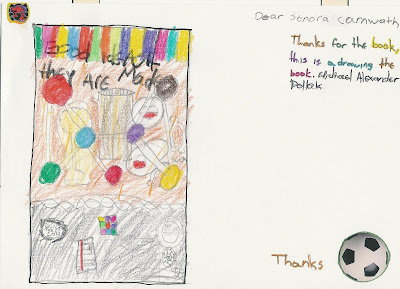 they Are
Dear Senora Carnwath
Thanks for the book,
this is a drawing the
book. Michael Alexander
Thanks